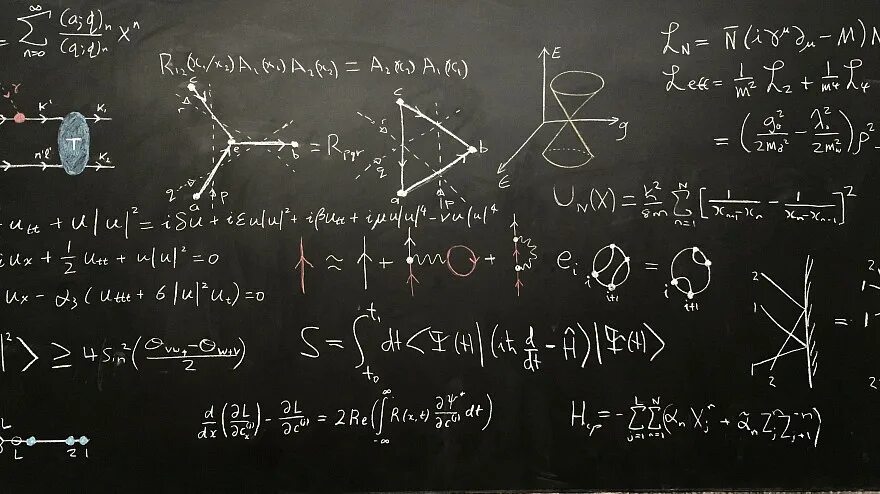 = ∑_{n=0}^{∞} (a;q)_n / (q;q)_n x^n
R_{12}(x_1/x_2) A_1(x_1) A_2(x_2) = A_2(x_2) A_1(x_1)
E
g
ε
ℒ_N = N̄(iγ^μ ∂_μ − M)N
ℒ_{eff} = 1/m² ℒ_2 + 1/m⁴ ℒ_4
= (g_0²/2m_0² − λ_0²/2m_n²)ρ²
K' K_1
T
n'l' K_2
c
r
e
b
q
a
p
= R_{pqr}
c
r
b
q
a
r
U_N(X) = ħ²/8m ∑_{n=1}^{N} [1/(x_{m+1}−x_n) − 1/(x_n−x_{n−1})]²
u_{tt} + u|u|² = iδu + iεu|u|² + iβu_{tt} + iμu|u|⁴ − νu|u|⁴
iu_x + 1/2 u_{tt} + u|u|² = 0
u_x − α_3(u_{ttt} + 6|u|²u_t) = 0
≈ + +
e_i
i
i+1
=
i
i+1
2
1
1
2
=
|²⟩ ≥ 4 Sin²( /2)
S = ∫_{t_0}^{t_1} dt ⟨Ψ(t)|(iħ d/dt − Ĥ)|Ψ(t)⟩
d/dx (∂L/∂c_x^{(i)}) − ∂L/∂c^{(i)} = 2Re(∫_{−∞}^{∞} R(x,t) ∂Ψ*/∂c^{(i)} dt)
H_{cp} = −∑_{j=1}^{L} ∑_{n=1}^{N} (α_n X_j^n + α̃_n Z_j^n Z_{j+1}^{−n})
L
L 2 1